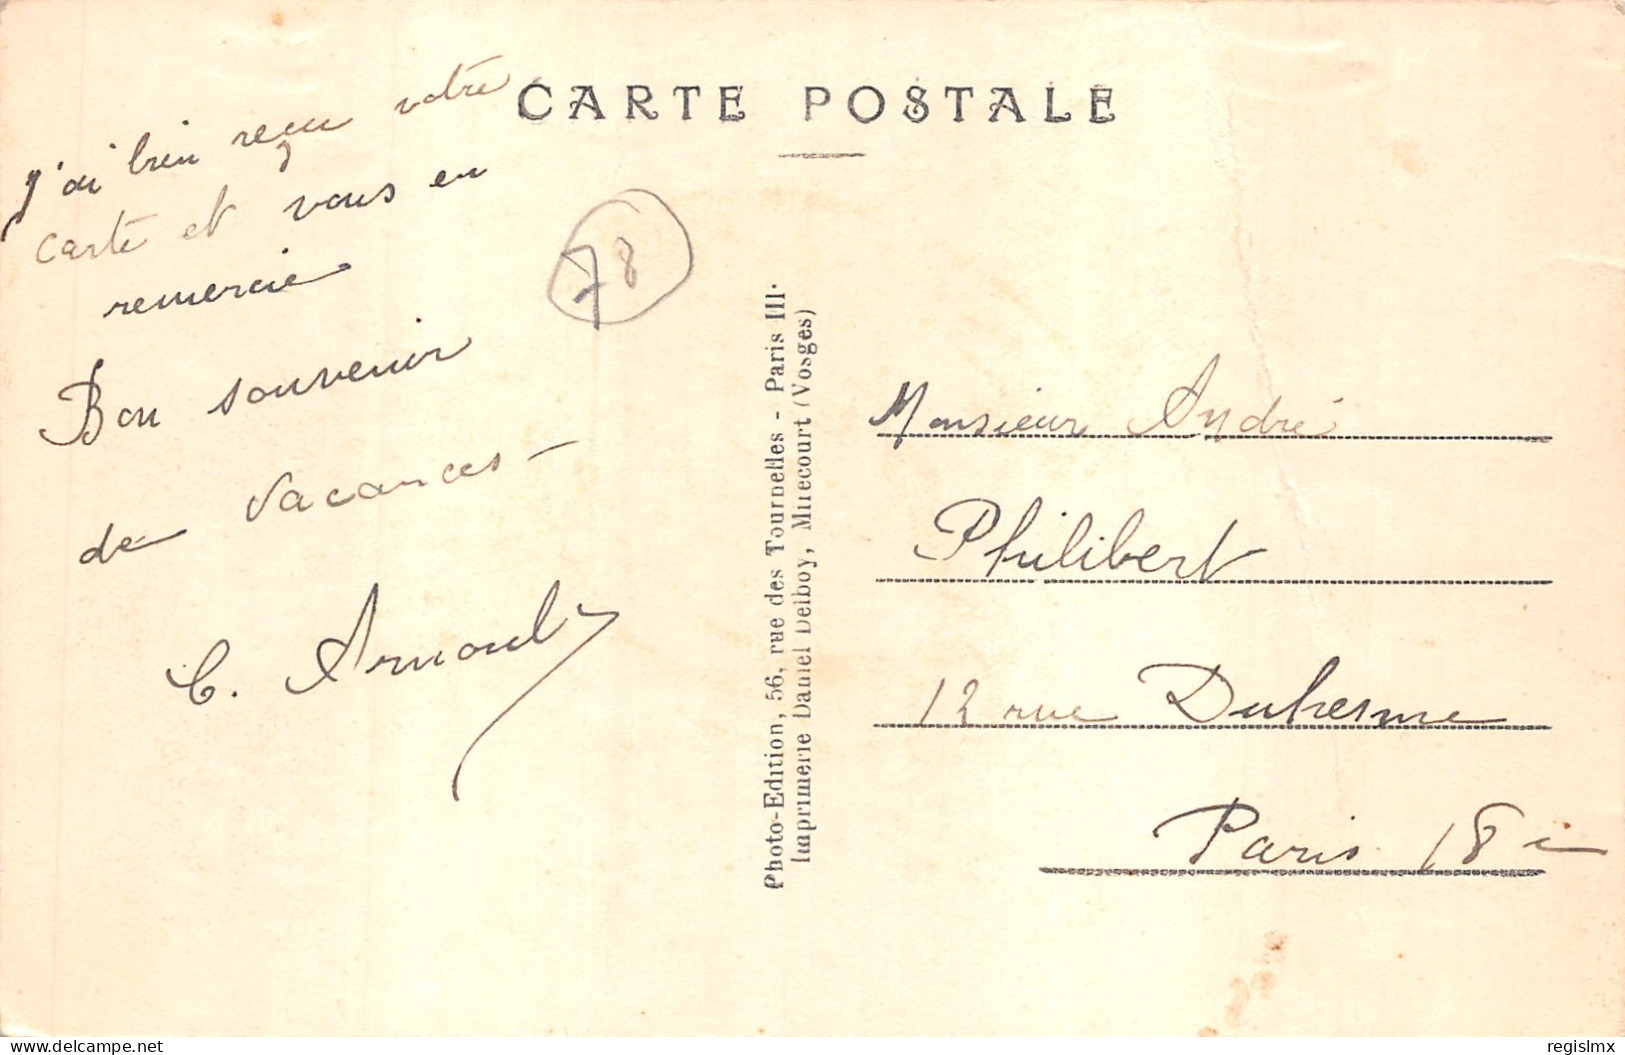 CARTE POSTALE
J'ai bien reçu votre
carte et vous en
remercie
Bon souvenir
de Vacances –
C. Arnould
78
Photo-Edition, 56, rue des Tournelles - Paris III.
Imprimerie Daniel Delboy, Mirecourt (Vosges)
Monsieur André
Philibert
12 rue Duhesme
Paris 18e
delcampe.net
regislmx